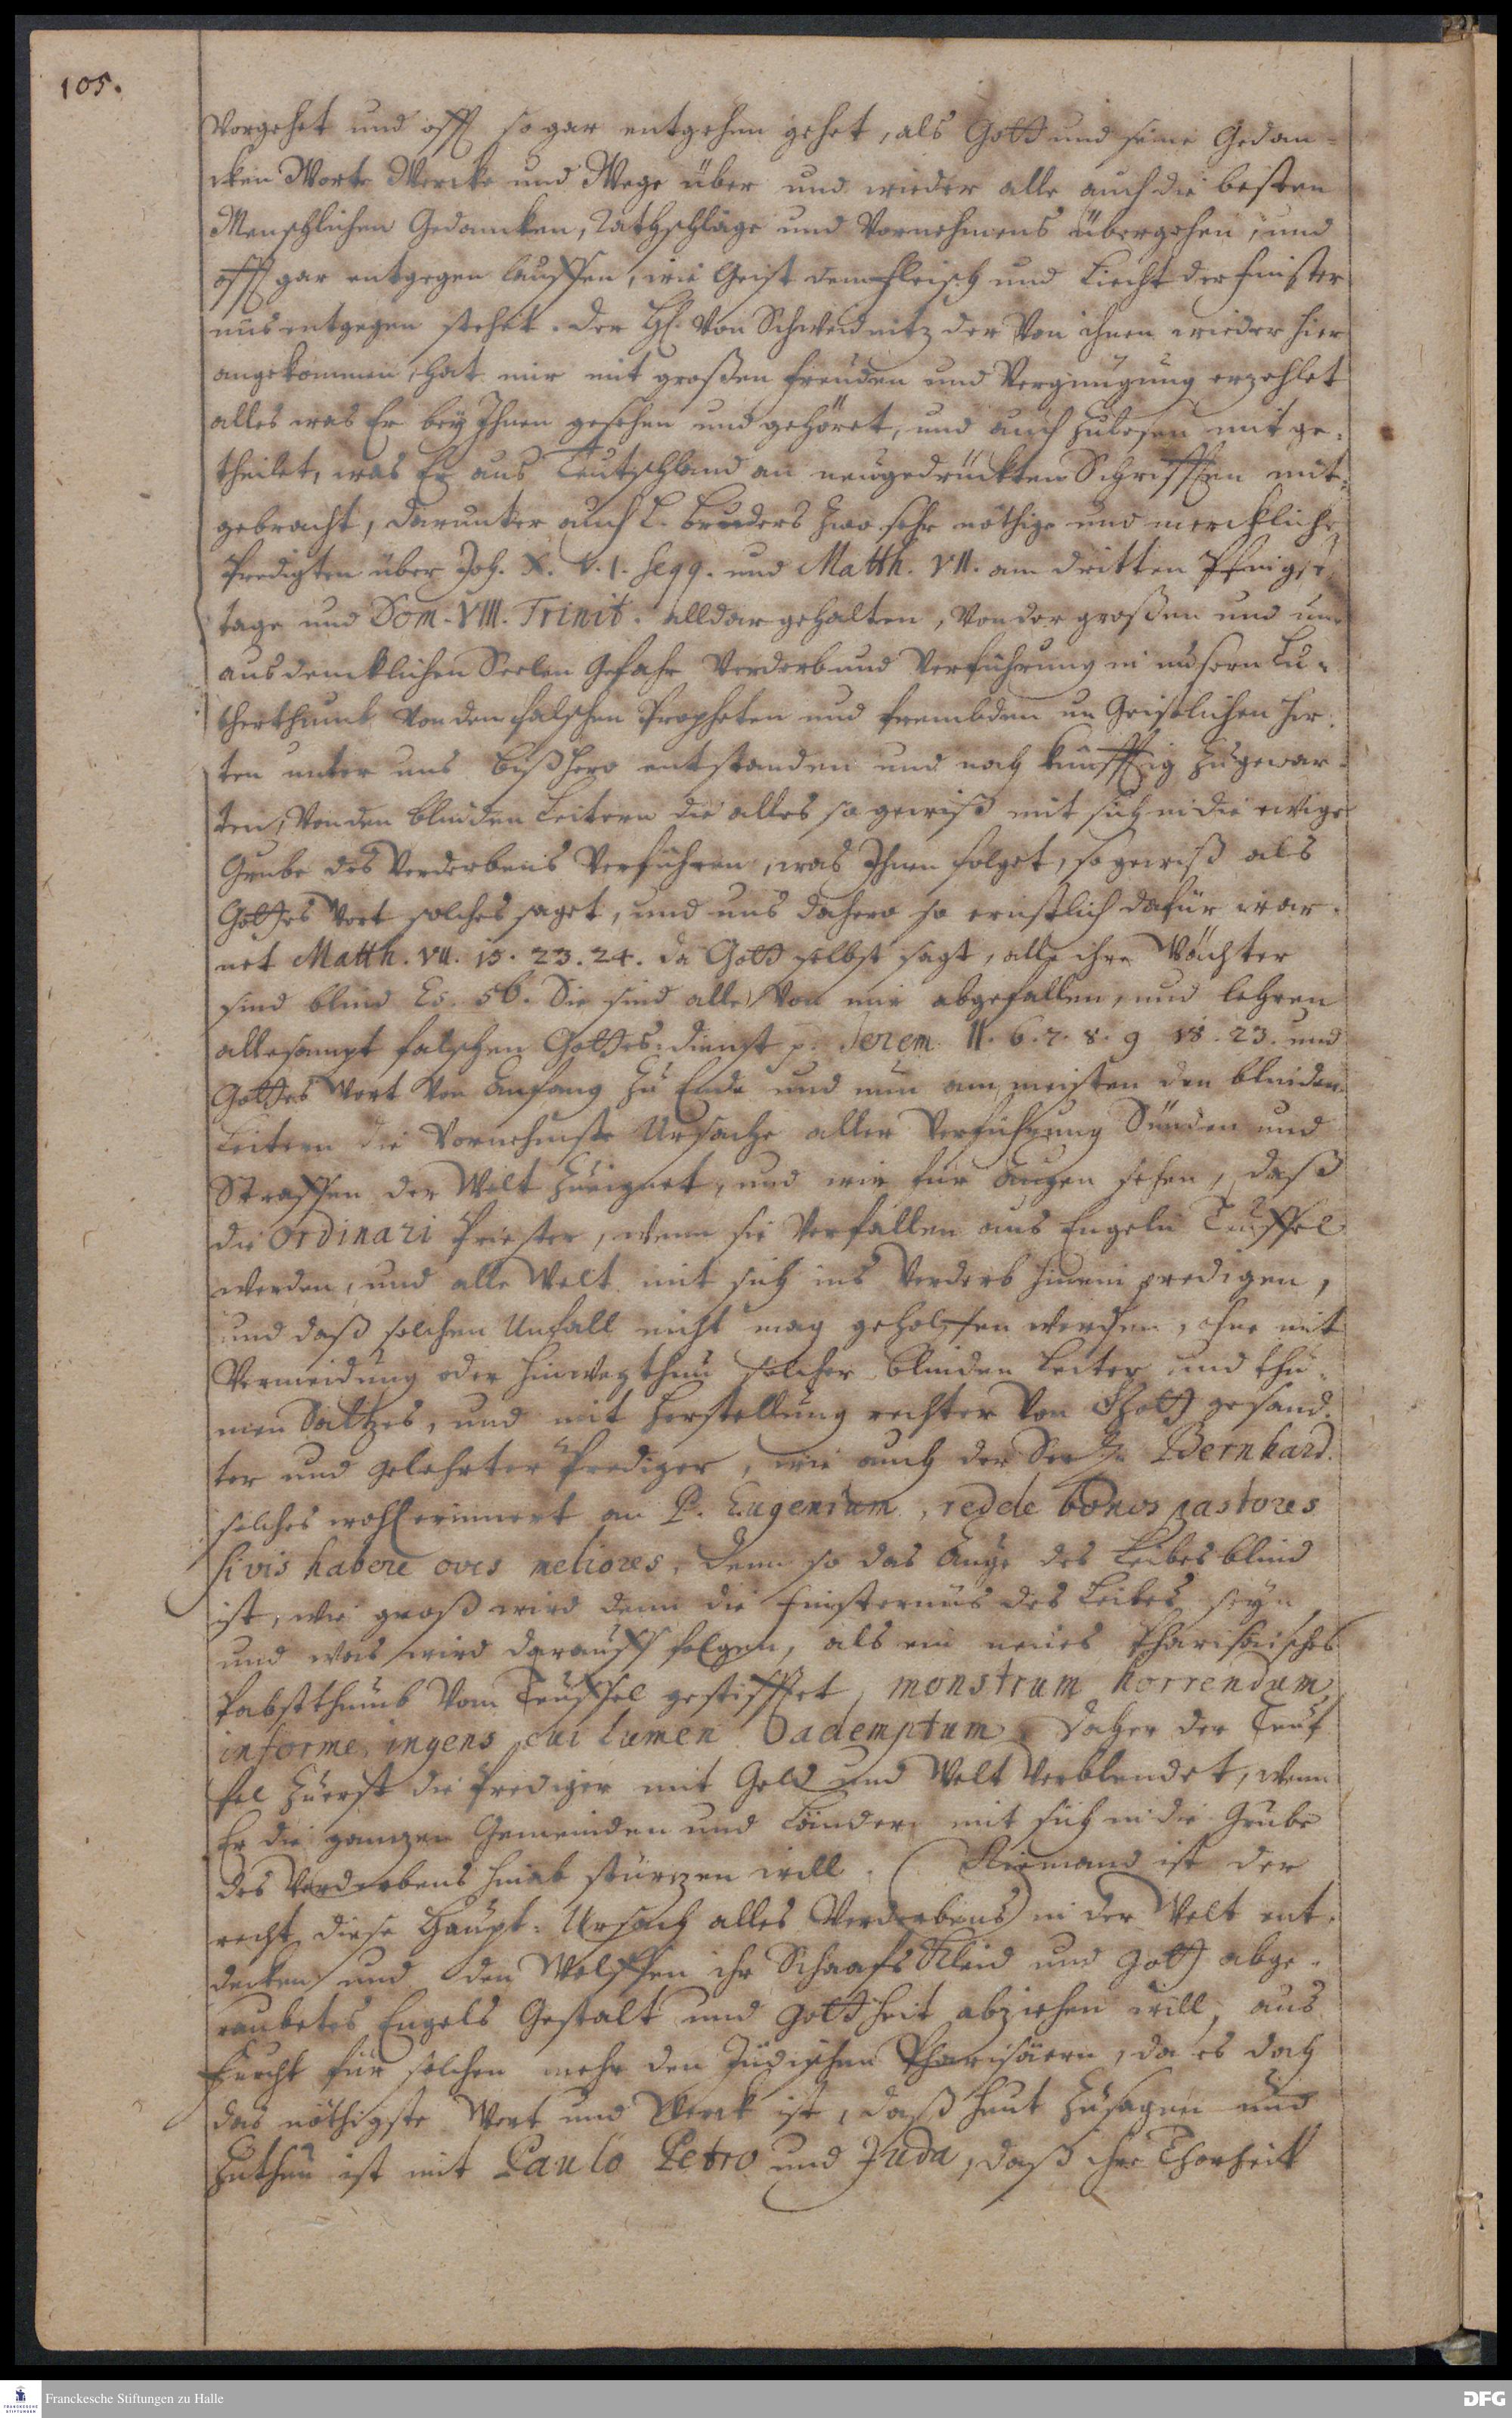 105.
Vorgehet und offt so gar entgehen gehet, als Gott und seine Gedan=
cken Worte Wercke und Wege über und wieder alle auch die besten
Menschlichen Gedancken, Rathschläge und Vornehmens übergehen, und
offt gar entgegen lauffen, wie Geist dem fleisch und Liecht der finster
nüs entgegen stehet. Der H. Von Schweidnitz der Von ihnen wieder hier
angekommen, hat mir mit großen freuden und Vergnügung erzehlet
alles was Er bey Ihnen gesehen und gehöret, und auch zulesen mit ge=
theilet, was Er aus Teutschland an neugedruckten Schrifften mit=
gebracht, darunter auch L. bruders zwo sehr nöthige und merckliche
Predigten über Joh. X. V. 1. seqq. und Matth. VII. am dritten Pfingst
tage und Dom. VIII. Trinit. alldar gehalten, Von der großen und un=
ausdencklichen Seelen Gefahr Verderb und Verführung in unsern Lu=
therthumb Von den falschen Propheten und frembden un Geistlichen Hir=
ten unter uns bißhero entstanden und noch künfftig zugewar=
ten, Von den blinden Leitern die alles so gewiß mit sich in die ewige
Grube des Verderbens Verführen, was Ihnen folget, so gewiß als
Gottes Wort solches saget, und uns dahero so ernstlich dafür war=
net Matth. VII. 15. 23. 24. da Gott selbst sagt, alle ihre Wächter
sind blind Es. 56. Sie sind alle Von mir abgefallen, und lehren
allesampt falschen Gottes=dienst p. Jerem. II. 6. 7. 8. 9 18. 23. und
Gottes Wort Von Anfang zu Ende und nun am meisten den blinden
Leitern die Vornehmste Ursache aller Verführung Sünden und
Straffen der Welt zueignet, und wir für Augen sehen, daß
die Ordinari Priester, wenn sie Verfallen aus Engeln Teuffel
werden, und alle Welt mit sich ins Verderb hinein predigen,
und daß solchen Unfall nicht mag geholffen werden, ohne mit
Vermeidung oder hinwegthun solcher blinden Leiter und thu=
men Saltzes, und mit herstellung rechter Von Gott gesand=
ter und gelehrter Prediger, wie auch der Bernhard.
solches wohl erinnert an P. Eugenium, redde bonos pastores
si vis habere oves meliores, Denn so das Auge des Leibes blind
ist, wie groß wird denn die finsternüs des Leibes seyn
und was wird darauß folgen, als ein neues Pharisäisches
Pabstthumb Vom Teuffel gestifftet, monstrum horrendum
informe, ingens cui lumen ademptum. Daher der Teuf
fel zuerst die Prediger mit Geld und Welt Verblendet, wenn
Er die ganzen Gemeinden und Länder mit sich in die Grube
des Verderbens hinab stürzen will. (Niemand ist der
recht diese Haupt=Ursach alles Verderbens) in der Welt ent=
decken und den Wolffen ihr Schaafs Kleid und Gott abge=
raubetes Engels Gestalt und Gottheit abziehen will, aus
Furcht für solchen mehr den Jüdischen Pharisäern, da es doch
das nöthigste Wort und Werck ist, daß heut zusagen und
zuthun ist mit Paulo Petro und Juda, daß ihre Thorheit
Franckesche Stiftungen zu Halle
FRANCKESCHE STIFTUNGEN
DFG